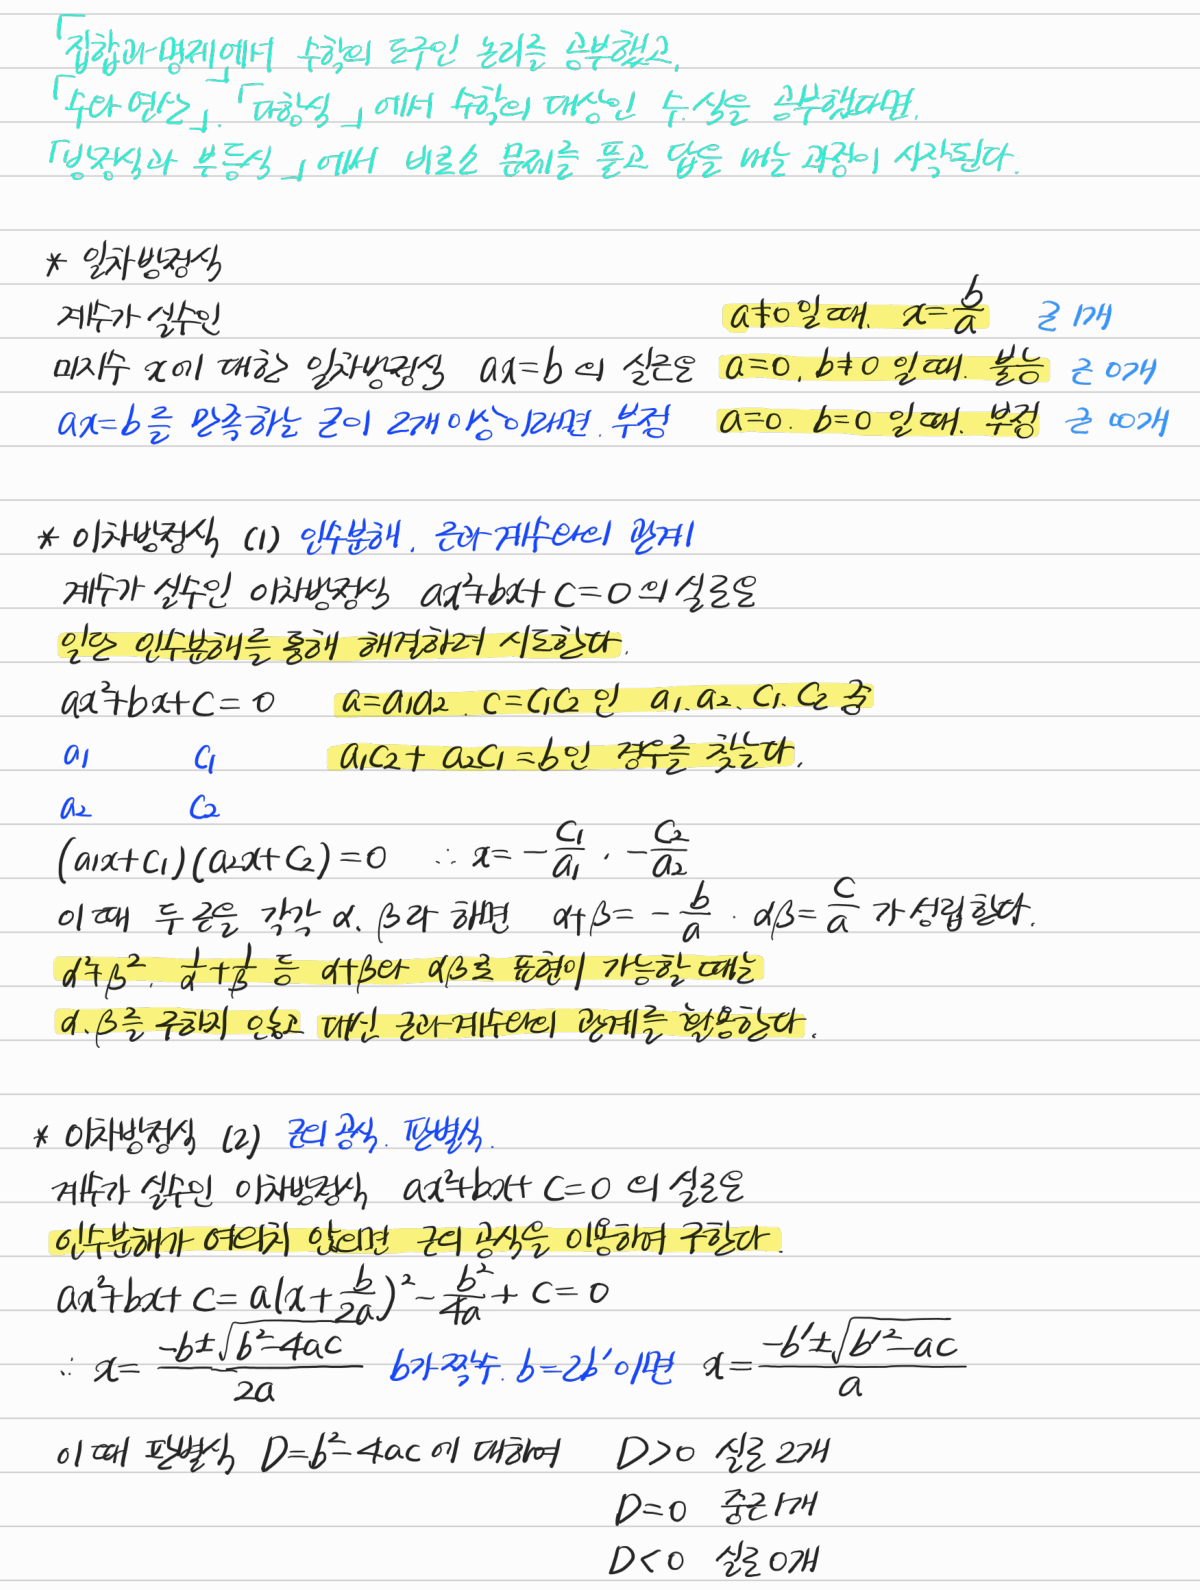 「집합과 명제」에서 수학의 도구인 논리를 공부했고,
「수와 연산」, 「다항식」에서 수학의 대상인 수.식을 공부했다면,
「방정식과 부등식」에서 비로소 문제를 풀고 답을 내는 과정이 시작된다.
* 일차방정식
계수가 실수인 a≠0일 때, x=b/a 근 1개
미지수 x에 대한 일차방정식 ax=b의 실근은 a=0, b≠0일 때, 불능 근 0개
ax=b를 만족하는 근이 2개 이상이라면, 부정 a=0, b=0일 때, 부정 근 ∞개
* 이차방정식 (1) 인수분해, 근과 계수와의 관계
계수가 실수인 이차방정식 ax²+bx+c=0의 실근은
일단 인수분해를 통해 해결하려 시도한다.
ax²+bx+c=0 a=a₁a₂, c=c₁c₂인 a₁, a₂, c₁, c₂ 중
a₁ c₁ a₁c₂+a₂c₁=b인 경우를 찾는다.
a₂ c₂
(a₁x+c₁)(a₂x+c₂)=0 ∴ x=-c₁/a₁, -c₂/a₂
이 때 두 근을 각각 α, β라 하면 α+β=-b/a, αβ=c/a가 성립한다.
α²+β², 1/α+1/β 등 α+β와 αβ로 표현이 가능할 때는
α, β를 구하지 않고 대신 근과 계수와의 관계를 활용한다.
* 이차방정식 (2) 근의 공식, 판별식.
계수가 실수인 이차방정식 ax²+bx+c=0의 실근은
인수분해가 여의치 않으면 근의 공식을 이용하여 구한다.
ax²+bx+c=a(x+b/2a)²-b²/4a+c=0
∴ x=(-b±√(b²-4ac))/2a b가 짝수, b=2b'이면 x=(-b'±√(b'²-ac))/a
이 때 판별식 D=b²-4ac에 대하여 D>0 실근 2개
D=0 중근 1개
D<0 실근 0개